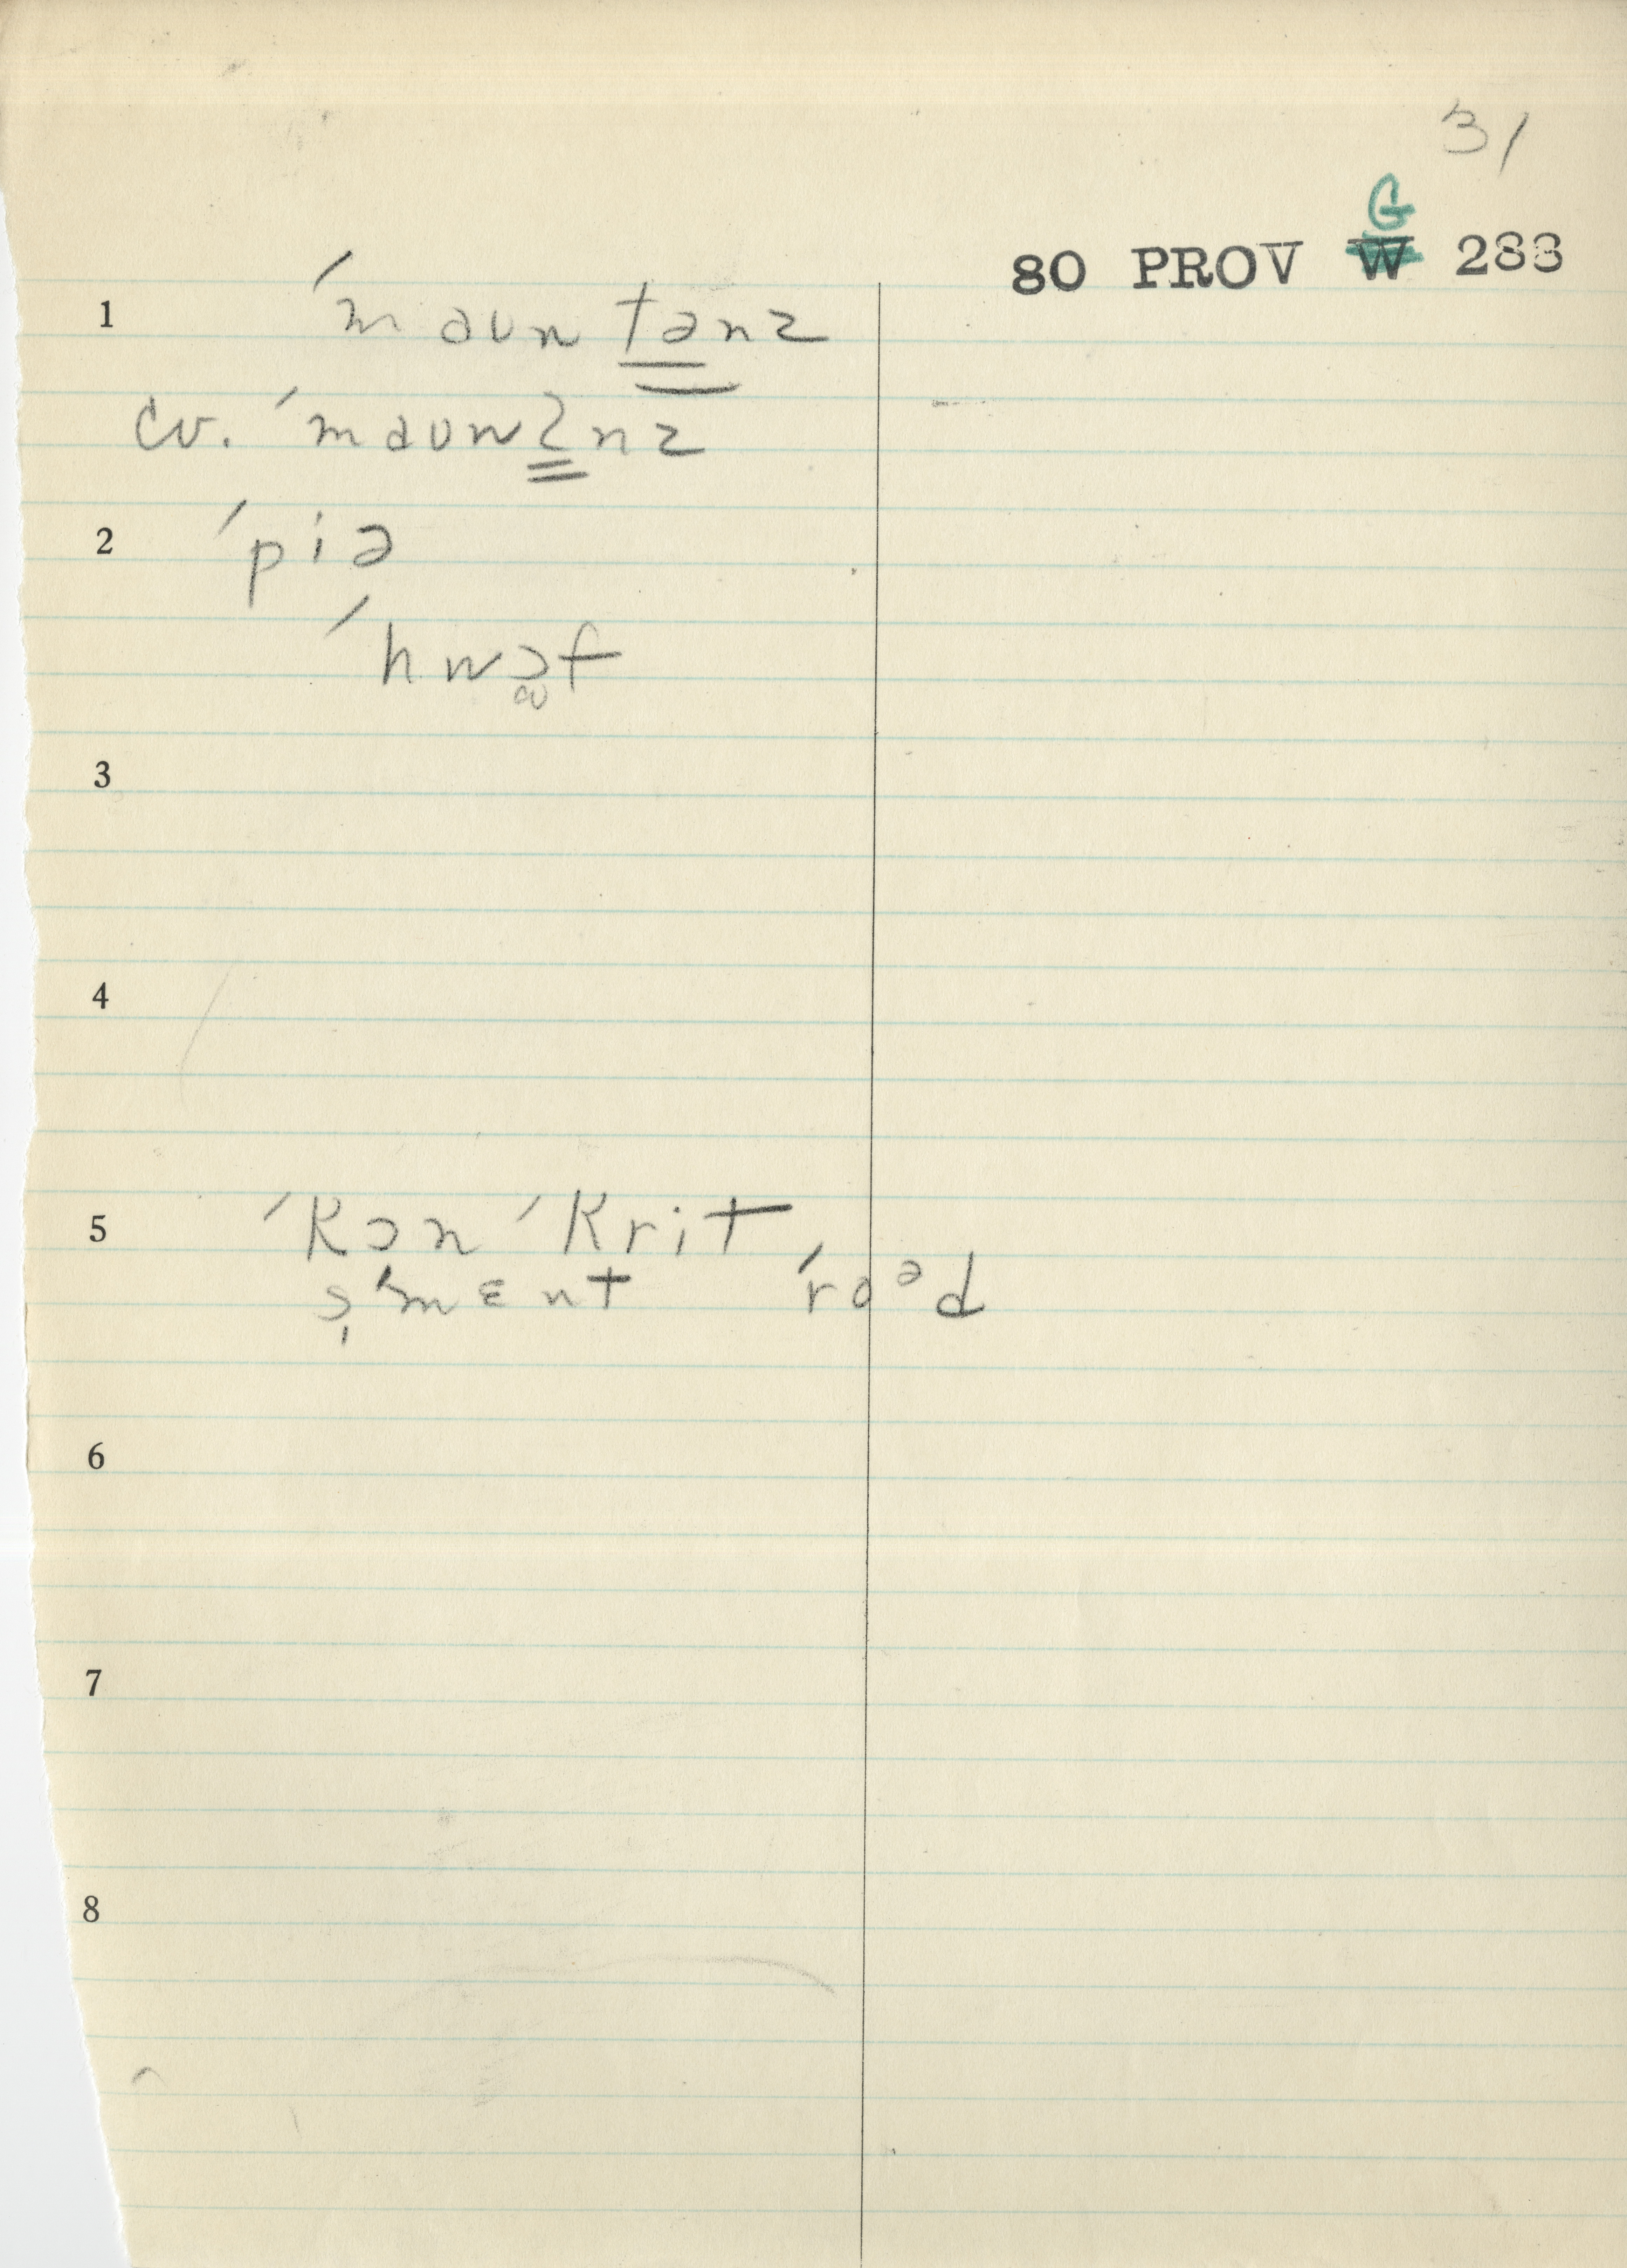 31
G
80 PROV W 283
1 ˈmaʊntənz
cv. ˈmaʊnʔnz
2 ˈpiə
ˈhwɔf
3
4
5 ˈkɔnˈkrit
sˈmɛnt ˈroᵊd
6
7
8